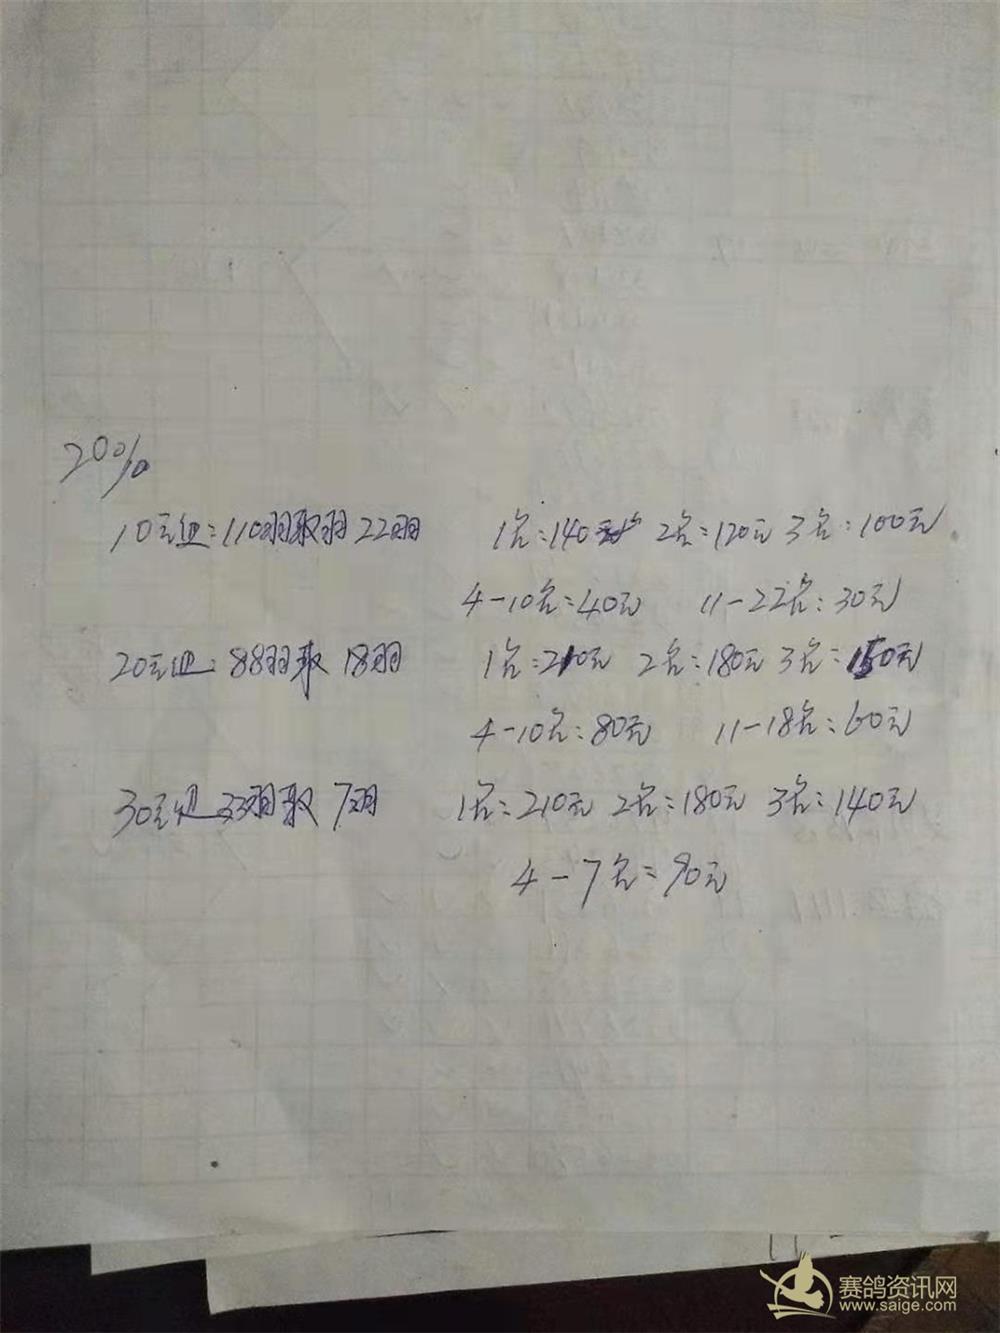 20%
10元组:110羽取羽22羽 1名:140 2名:120元 3名:100元
4-10名:40元 11-22名:30元
20元组:88羽取18羽 1名:210元 2名:180元 3名:150元
4-10名:80元 11-18名:60元
30元组 33羽取7羽 1名:210元 2名:180元 3名:140元
4-7名:90元
赛鸽资讯网
www.saige.com